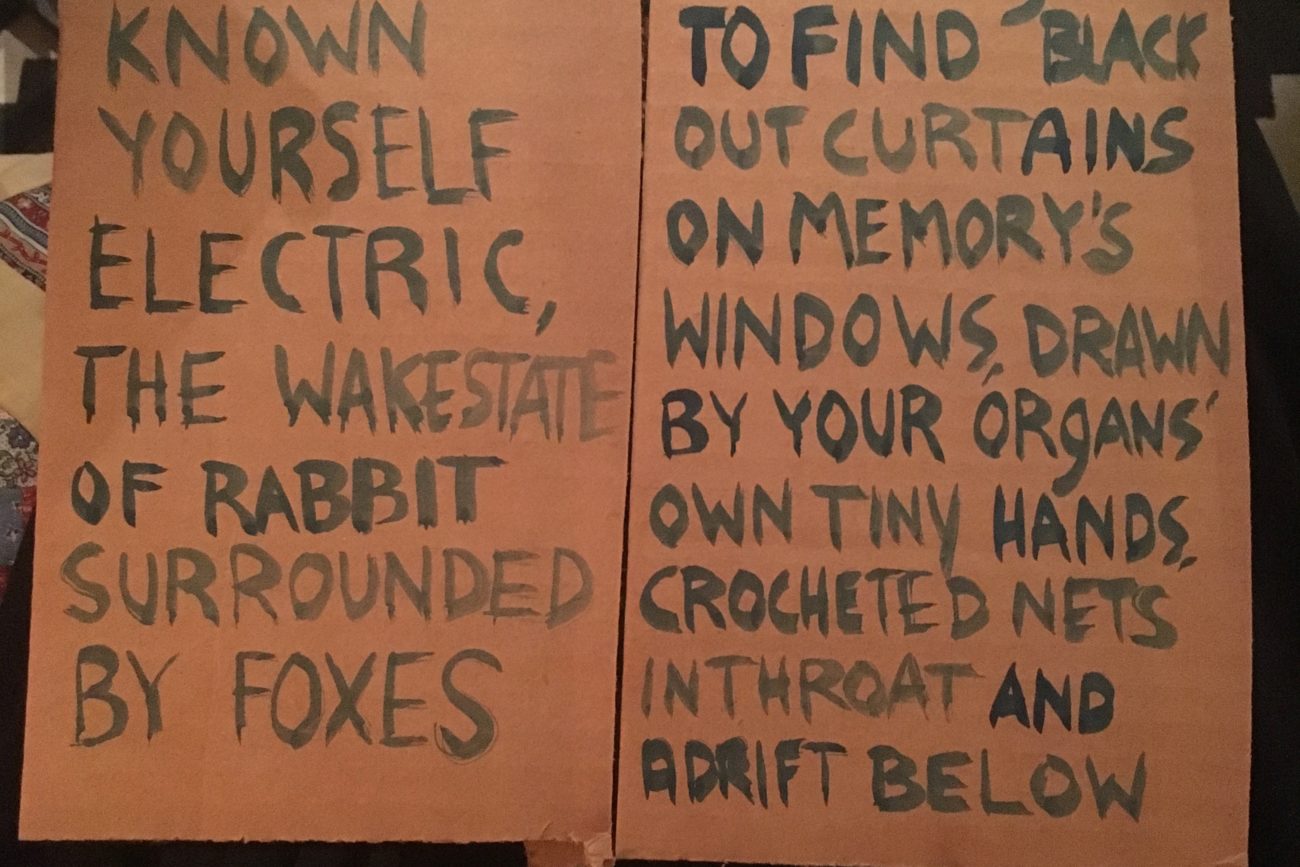 KNOWN
YOURSELF
ELECTRIC,
THE WAKESTATE
OF RABBIT
SURROUNDED
BY FOXES
TO FIND BLACK
OUT CURTAINS
ON MEMORY'S
WINDOWS, DRAWN
BY YOUR ORgANS'
OWN TINY HANDS,
CROCHETED NETS
IN THROAT AND
ADRIFT BELOW